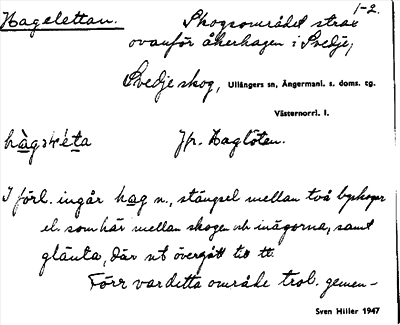 Hagelettan. Skogsområdet strax 1-2.
ovanför åkerhagen i Svedje,
Svedje skog, Ullångers sn, Ångermanl. s. doms. tg.
Västernorrl. l.
Jfr. Haglöten.
I förl. ingår hag n., stängsel mellan två byskogar
el. som här mellan skogen och inägorna, samt
glänta, där nt övergått till tt.
Förr var detta område trol. gemen-
Sven Hiller 1947